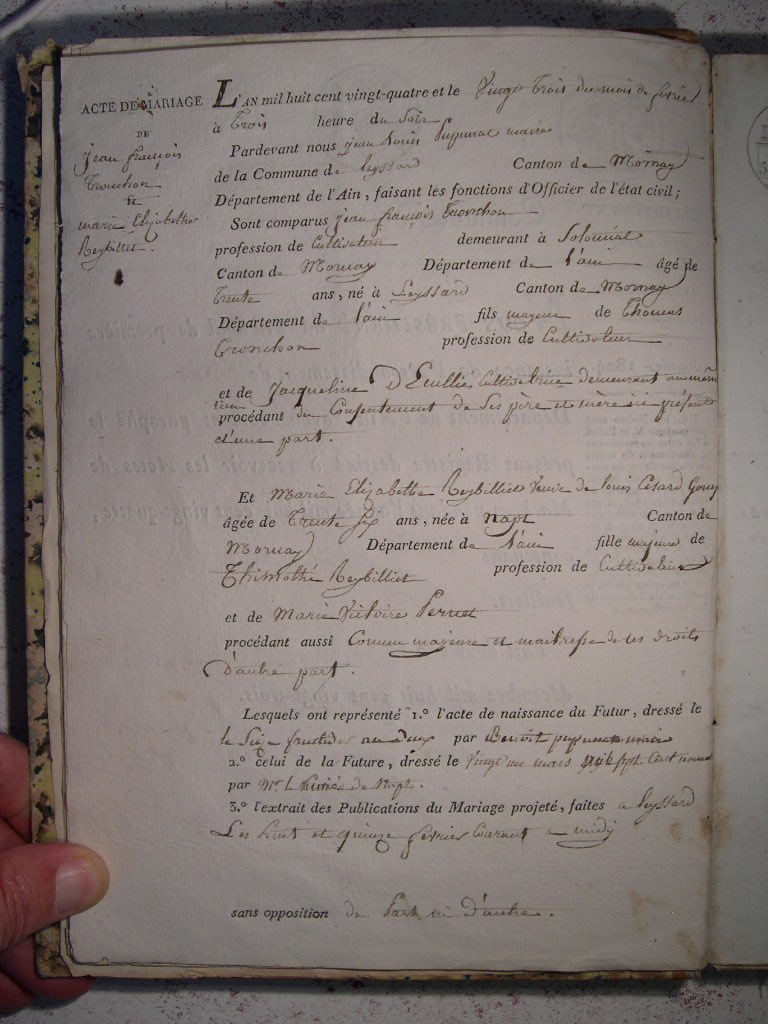 ACTE DE MARIAGE
DE
jean françois
Tronchon
et
marie Elizabethe
Reybilliet.
L'AN mil huit cent vingt-quatre et le Vingt trois du mois de fevrier
à Trois heure du Soir
Pardevant nous jean louis maire
de la Commune de leyssard Canton de Mornay
Département de l'Ain, faisant les fonctions d'Officier de l'état civil;
Sont comparus jean françois Tronchon
profession de Cultivateur demeurant à Solomiat
Canton de Mornay Département de l'ain âgé de
Trente ans, né à Leyssard Canton de Mornay
Département de l'ain fils majeur de Thomas
Tronchon profession de Cultivateur
et de Jacqueline Cultivatrice demeurant au même
lieu
procédant du Consentement de Ses père et mère ici présents
d'une part.
Et Marie Elizabethe Reybilliet Veuve de louis Césard
âgée de Trente Six ans, née à Napt Canton de
Mornay Département de l'ain fille majeure de
Thimothé Reybilliet profession de Cultivateur
et de Marie Victoire Perret
procédant aussi Comme majeure et maitresse de ses droits
D'autre part.
Lesquels ont représenté 1.º l'acte de naissance du Futur, dressé le
le Seize fructidor an Deux par Benoit maire
2.º celui de la Future, dressé le Vingt un mars mil sept Cent
par Mr le de Napt.
3.º l'extrait des Publications du Mariage projeté, faites a leyssard
Les huit et quinze fevrier Courant a midy
sans opposition de Part ni d'autre.